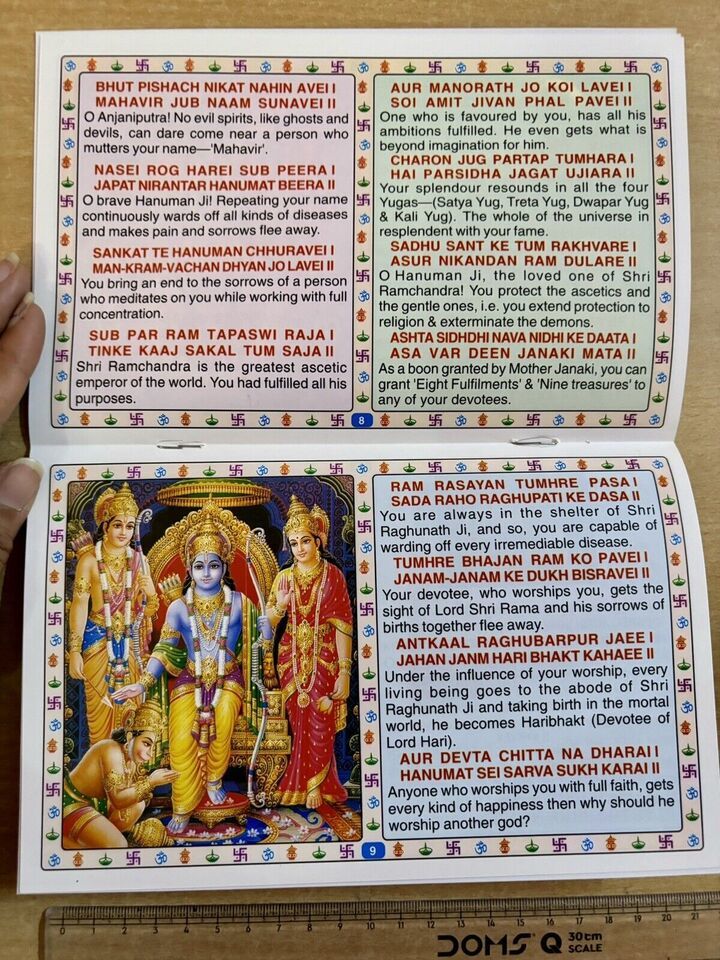 BHUT PISHACH NIKAT NAHIN AVEI I
MAHAVIR JUB NAAM SUNAVEI II
O Anjaniputra! No evil spirits, like ghosts and
devils, can dare come near a person who
mutters your name—'Mahavir'.
NASEI ROG HAREI SUB PEERA I
JAPAT NIRANTAR HANUMAT BEERA II
O brave Hanuman Ji! Repeating your name
continuously wards off all kinds of diseases
and makes pain and sorrows flee away.
SANKAT TE HANUMAN CHHURAVEI I
MAN-KRAM-VACHAN DHYAN JO LAVEI II
You bring an end to the sorrows of a person
who meditates on you while working with full
concentration.
SUB PAR RAM TAPASWI RAJA I
TINKE KAAJ SAKAL TUM SAJA II
Shri Ramchandra is the greatest ascetic
emperor of the world. You had fulfilled all his
purposes.
AUR MANORATH JO KOI LAVEI I
SOI AMIT JIVAN PHAL PAVEI II
One who is favoured by you, has all his
ambitions fulfilled. He even gets what is
beyond imagination for him.
CHARON JUG PARTAP TUMHARA I
HAI PARSIDHA JAGAT UJIARA II
Your splendour resounds in all the four
Yugas—(Satya Yug, Treta Yug, Dwapar Yug
& Kali Yug). The whole of the universe in
resplendent with your fame.
SADHU SANT KE TUM RAKHVARE I
ASUR NIKANDAN RAM DULARE II
O Hanuman Ji, the loved one of Shri
Ramchandra! You protect the ascetics and
the gentle ones, i.e. you extend protection to
religion & exterminate the demons.
ASHTA SIDHDHI NAVA NIDHI KE DAATA I
ASA VAR DEEN JANAKI MATA II
As a boon granted by Mother Janaki, you can
grant 'Eight Fulfilments' & 'Nine treasures' to
any of your devotees.
8
RAM RASAYAN TUMHRE PASA I
SADA RAHO RAGHUPATI KE DASA II
You are always in the shelter of Shri
Raghunath Ji, and so, you are capable of
warding off every irremediable disease.
TUMHRE BHAJAN RAM KO PAVEI I
JANAM-JANAM KE DUKH BISRAVEI II
Your devotee, who worships you, gets the
sight of Lord Shri Rama and his sorrows of
births together flee away.
ANTKAAL RAGHUBARPUR JAEE I
JAHAN JANM HARI BHAKT KAHAEE II
Under the influence of your worship, every
living being goes to the abode of Shri
Raghunath Ji and taking birth in the mortal
world, he becomes Haribhakt (Devotee of
Lord Hari).
AUR DEVTA CHITTA NA DHARAI I
HANUMAT SEI SARVA SUKH KARAI II
Anyone who worships you with full faith, gets
every kind of happiness then why should he
worship another god?
9
0 1 2 3 4 5 6 7 8 9 10 11 12 13 14 15 16 17 18 19 20 21
DOMS Q 30cm
SCALE